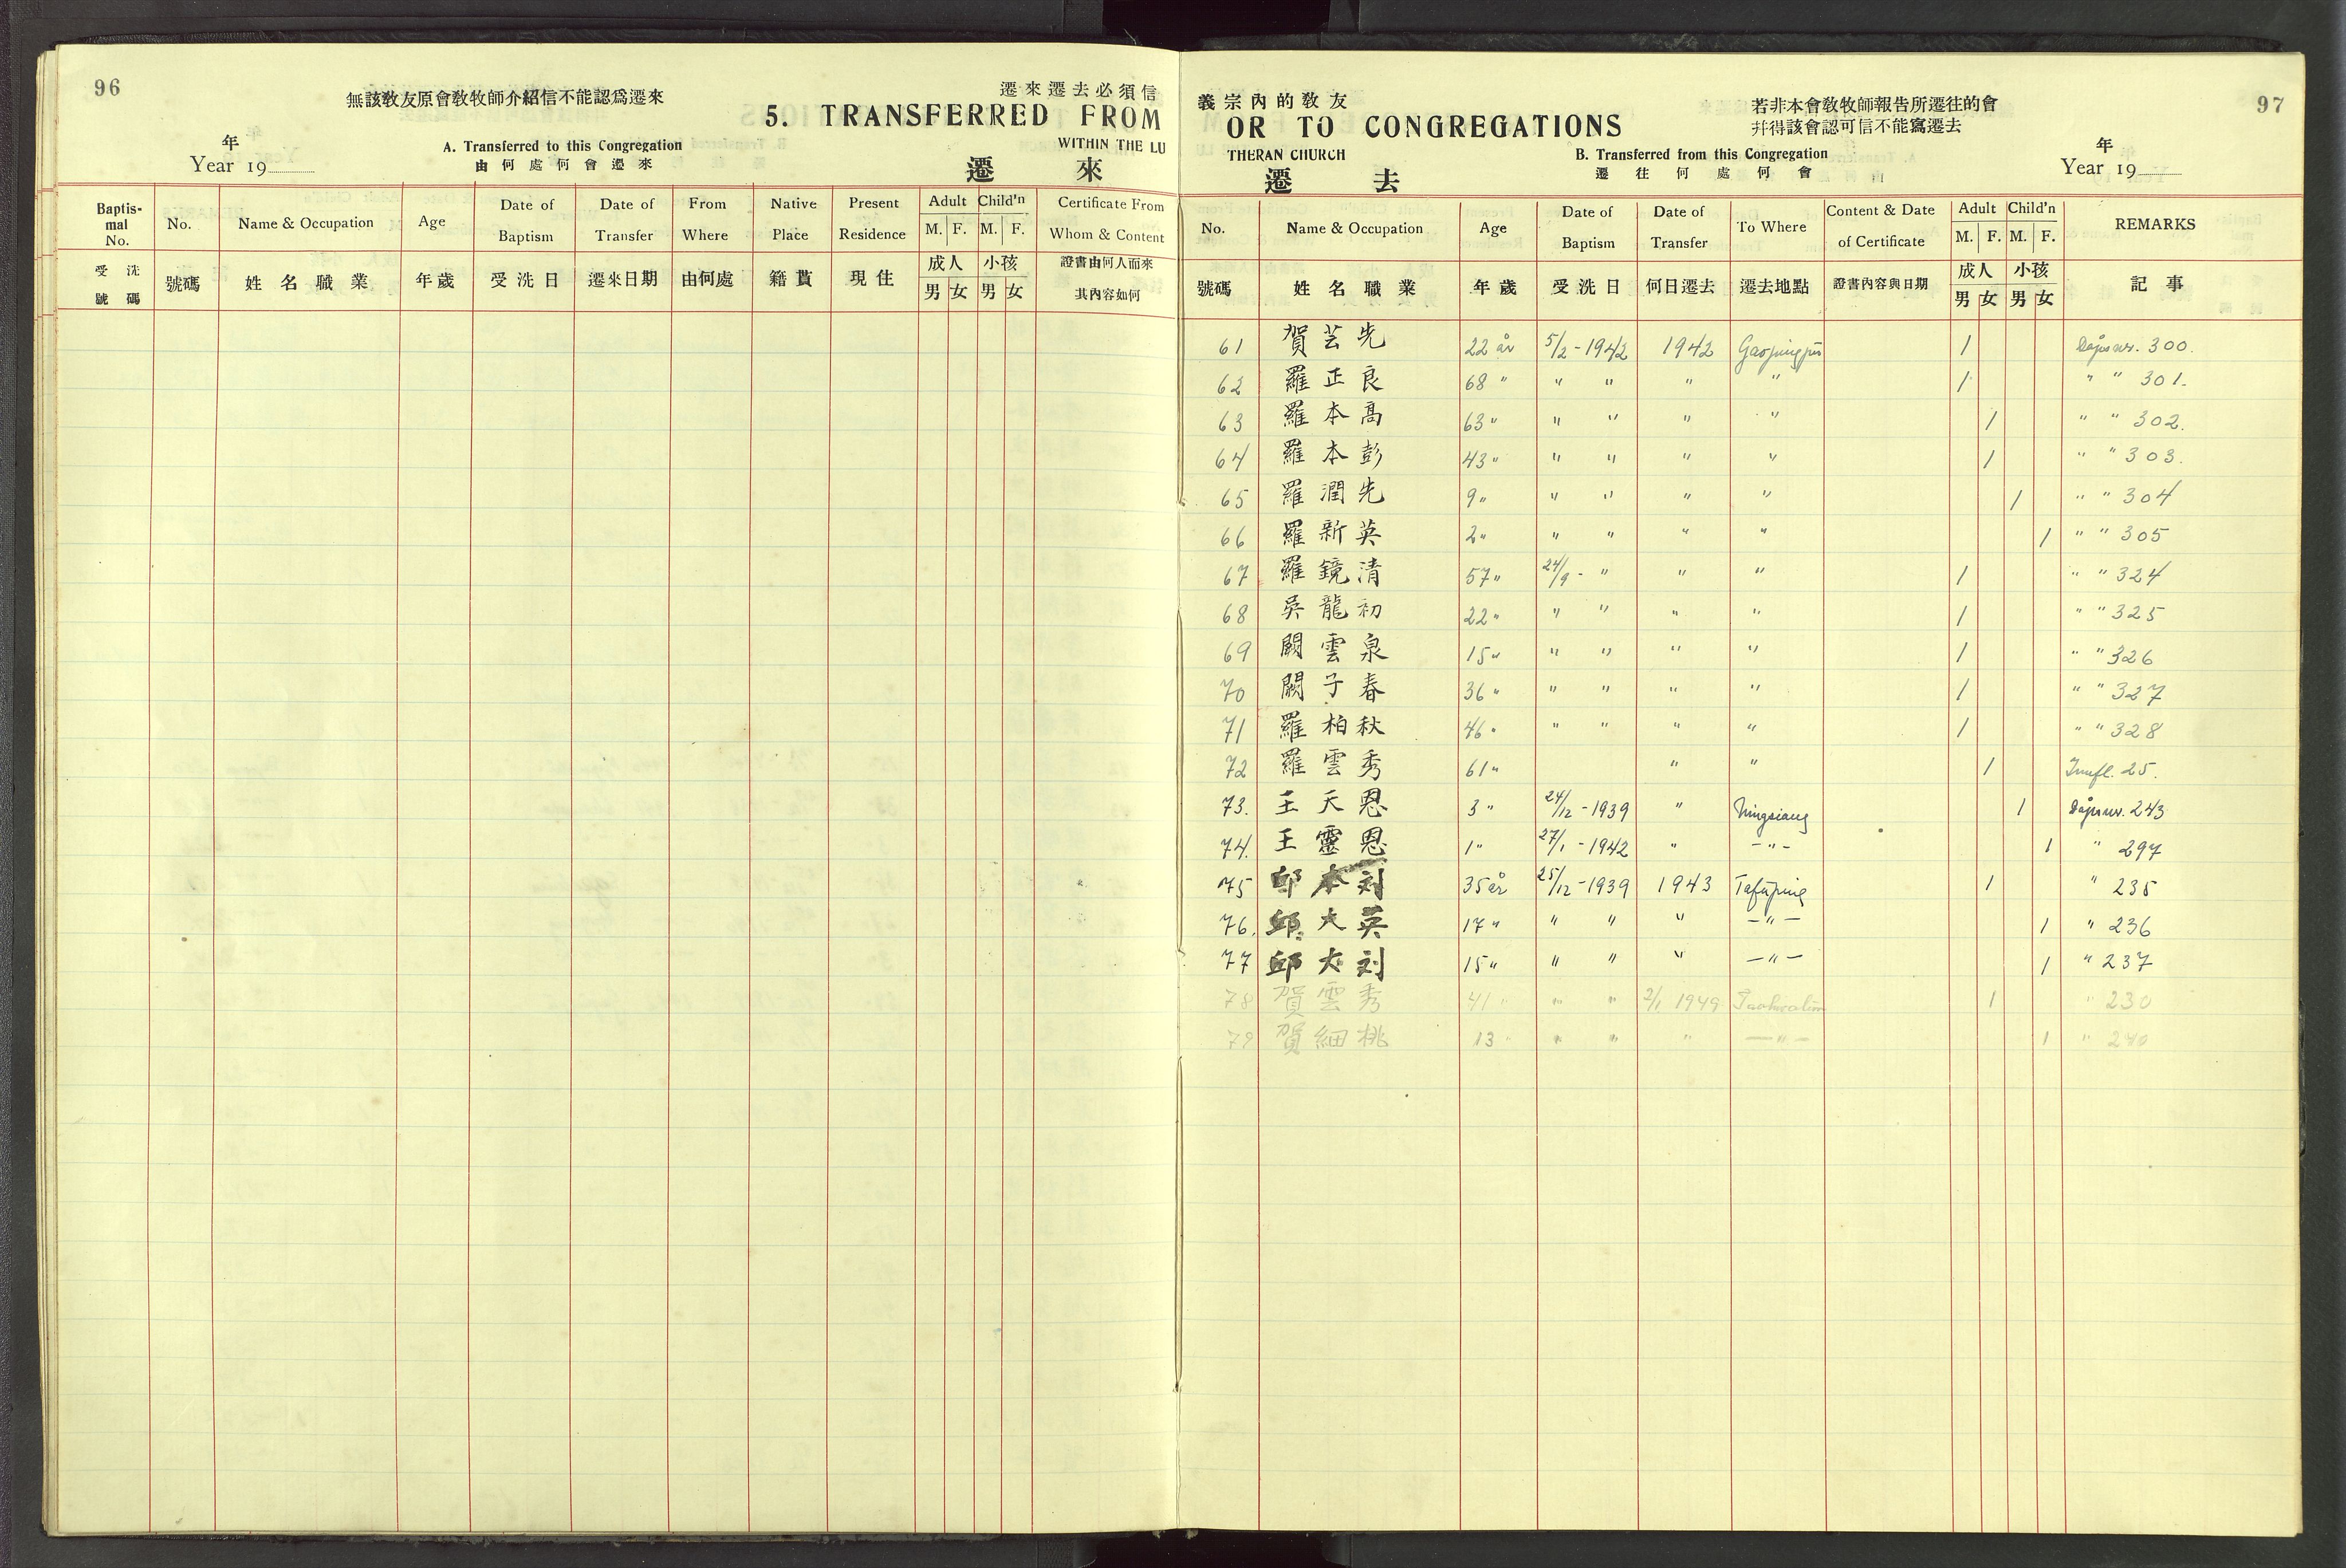 96
無該教友原會教牧師介紹信不能認爲遷來
遷來遷去必須信
5. TRANSFERRED FROM
年
Year 19
A. Transferred to this Congregation
WITHIN THE LU
由何處何會遷來
遷來
Baptis-mal No. No. Name & Occupation Age Date of Baptism Date of Transfer From Where Native Place Present Residence Adult M. F. Child'n M. F. Certificate From Whom & Content
受洗號碼 號碼 姓名職業 年歲 受洗日 遷來日期 由何處 籍貫 現住 成人 男 女 小孩 男 女 證書由何人而來 其內容如何
97
義宗內的教友
若非本會教牧師報告所遷往的會
幷得該會認可信不能寫遷去
OR TO CONGREGATIONS
年
Year 19
THERAN CHURCH
B. Transferred from this Congregation
遷去
遷往何處何會
No. Name & Occupation Age Date of Baptism Date of Transfer To Where Content & Date of Certificate Adult M. F. Child'n M. F. REMARKS
號碼 姓名職業 年歲 受洗日 何日遷去 遷去地點 證書內容與日期 成人 男 女 小孩 男 女 記事
61 賀芸先 22 år 5/2-1942 1942 1 Dåpsnr. 300.
62 羅正良 68 " " " " " 1 " " 301.
63 羅本高 63 " " " " " 1 " " 302.
64 羅本彭 43 " " " " " 1 " " 303.
65 羅潤先 9 " " " " " 1 " " 304
66 羅新英 2 " " " " " 1 " " 305
67 羅鏡清 57 " 24/9 - " " " 1 " " 324
68 吳龍初 22 " " " " " 1 " " 325
69 闕雲泉 15 " " " " " 1 " " 326
70 闕子春 36 " " " " " 1 " " 327
71 羅柏秋 46 " " " " " 1 " " 328
72 羅雲秀 61 " " " 1 Innfl. 25.
73. 王天恩 3 " 24/12-1939 " Ningsiang 1 Dåpsnr. 243
74. 王靈恩 1 " 27/1-1942 " -"- 1 " 297
75 邱本刘 35 år 25/12-1939 1943 Tafuping 1 " 235
76. 邱大英 17 " " " " -"- 1 " 236
77 邱大刘 15 " " " " -"- 1 " 237
78 賀雲秀 41 " " " 2/1 1949 1 " 230
79 賀細桃 13 " " " " -"- 1 " 240